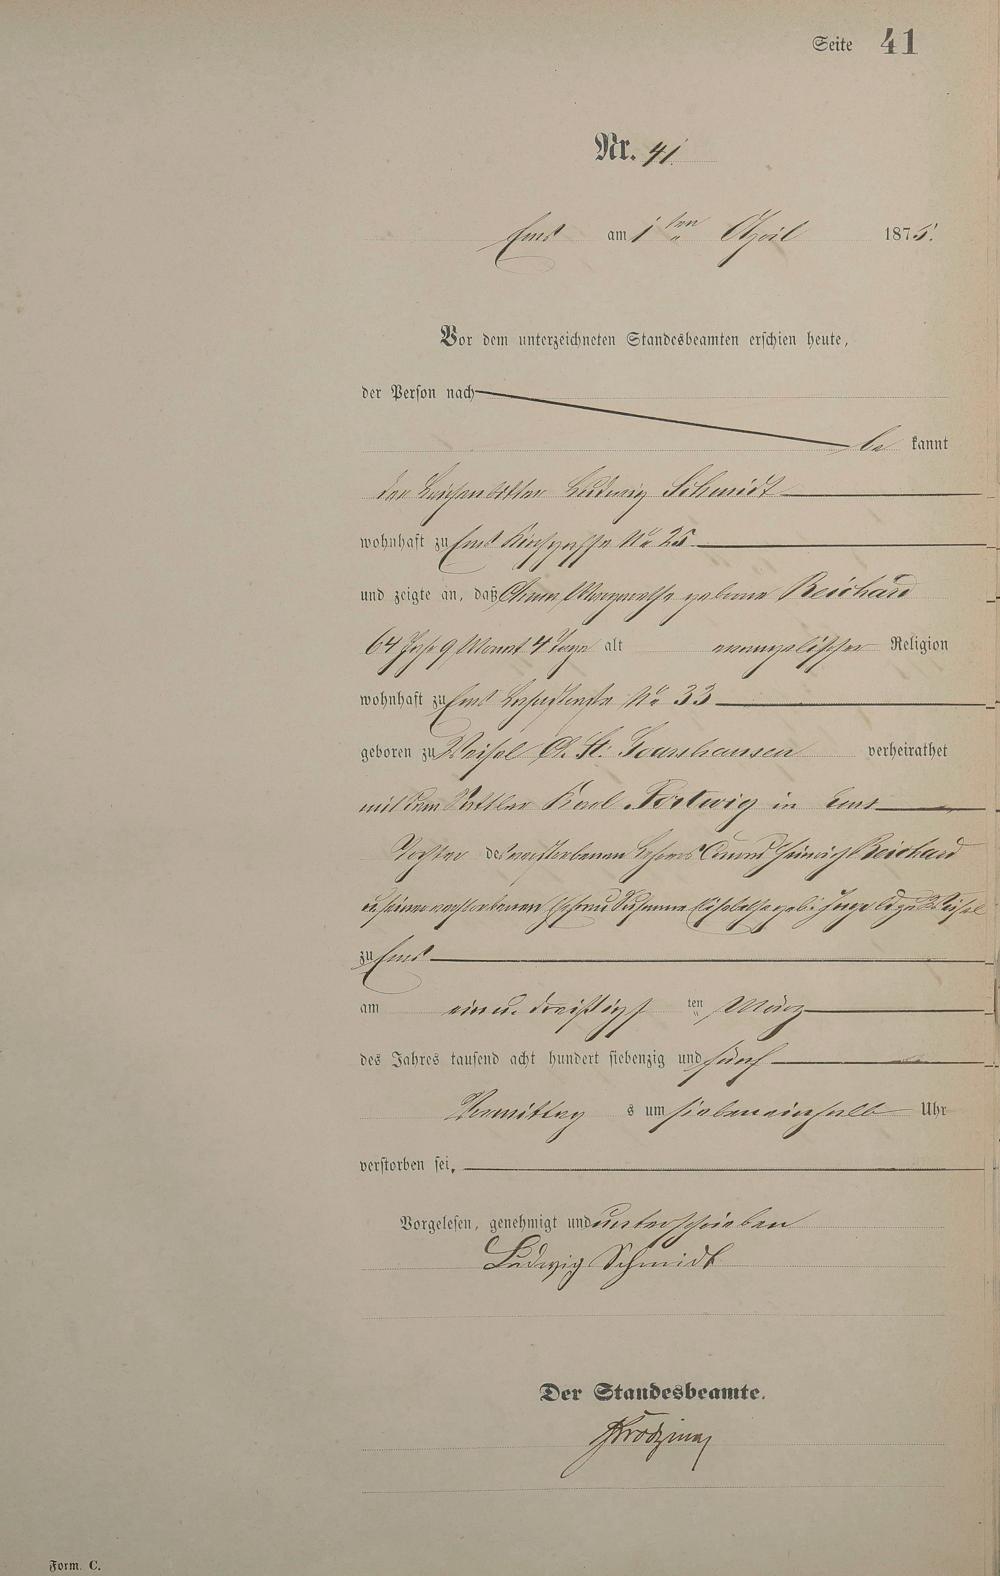 Seite 41
Nr. 41
Ems am 1 ten April 1875.
Vor dem unterzeichneten Standesbeamten erschien heute,
der Person nach
be kannt
der Leichenbitter Ludwig Schmidt
wohnhaft zu Ems Kirchgasse No 25
und zeigte an, daß Anna Margarethe geborne Reichard
64 Jahr 9 Monat 4 Tage alt evangelischer Religion
wohnhaft zu Ems No 33
geboren zu Weisel A. St. Goarshausen verheirathet
mit dem Sattler Karl in Ems
Tochter des verstorbenen Lehrers Reichard
verstorbenen Ehefrau Susanna zu Weisel
zu Ems
am ein u. dreißigs ten März
des Jahres tausend acht hundert siebenzig und fünf
Vormittag s um siebeneinhalb Uhr
verstorben sei.
Vorgelesen, genehmigt und unterschrieben
Ludwig Schmidt
Der Standesbeamte.
Form. C.